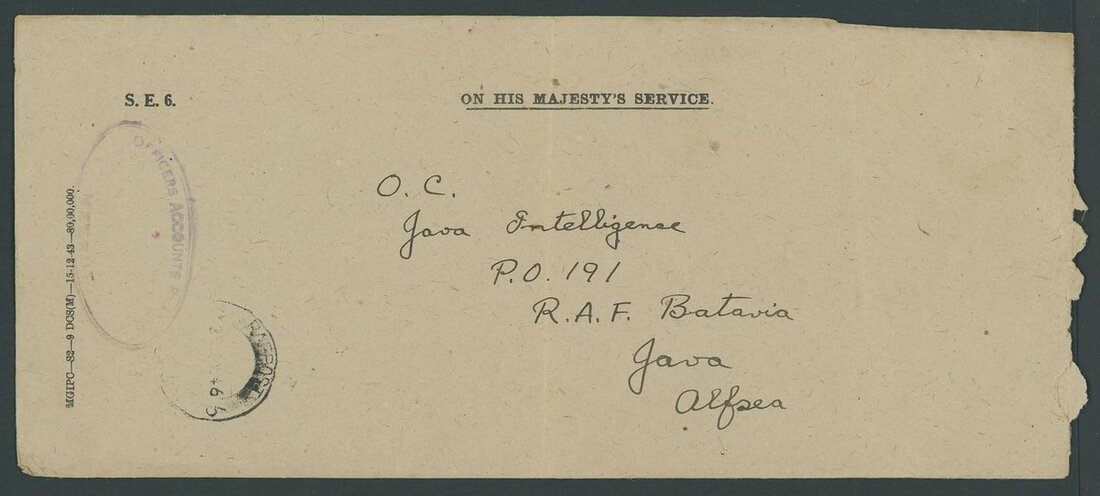 S. E. 6.
ON HIS MAJESTY'S SERVICE.
O. C.
Java Intelligence
P.O. 191
R.A.F. Batavia
Java
Alfsea
OFFICERS ACCOUNTS
MGIPC—S2—9 DCS(M)—15-12-43—80,00,000.